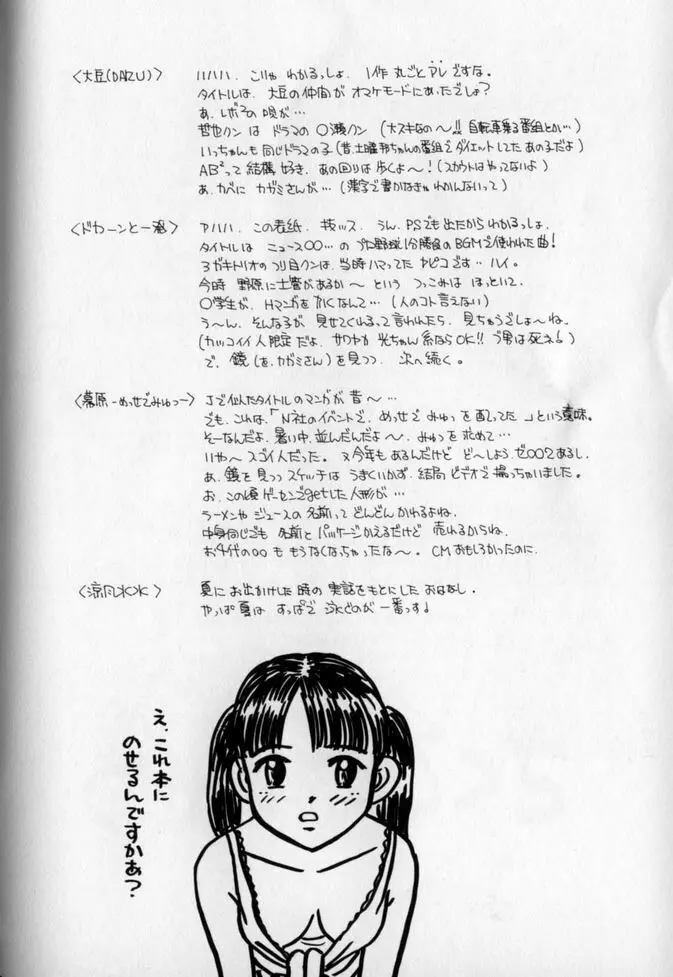 〈大豆(DAIZU)〉
ハハハ、こりゃ わかるっしょ、1作 丸ごと アレですな。
タイトルは、大豆の仲間が オマケモードにあったでしょ?
あ、レボ²の 唄が…
哲也クン は ドラマの 〇瀬クン (大スキなの〜!! 自転車乗る番組とか…)
いっちゃんも 同じドラマの子 (昔、土曜邦ちゃんの番組でダイエットしてた あの子だよ)
AB²って 結構 好き、あの回りは 歩くよ〜! (スカウトはやってないよ)
あ、カベに カガミさんが… (漢字で書かなきゃ わかんないって)
〈ドカーンと一発〉
アハハ、この表紙、技ッス、うん、PSでも出たからわかるっしょ。
タイトルは ニュース〇〇…の プロ野球1分勝負の BGMで使われた曲!
3ガキトリオのつり目クンは、当時ハマってた ヤピコです…ハイ。
今時 野原に土管があるか〜 という つっこみは ほっといて、
〇学生が、Hマンガを かくなんて… (人のコト言えない)
う〜ん、そんな子が 見せてくれるって言われたら、見ちゃうでしょ〜ね、
(カッコイイ人限定だよ、サワヤカ 光ちゃん系ならOK!! ブ男は死え!)
で、鏡(を、カガミさん)を見つつ 次へ続く。
〈幕原-めっせでみゅっ-〉
Jで似たタイトルのマンガが 昔〜…
でも、これは、「N社のイベントで、めっせで みゅっを 配ってた」という意味。
そーなんだよ、暑い中、並んだんだよ〜、みゅっを 求めて…
いや〜スゴイ人だった。 又今年も あるんだけど ど〜しよう、ゼ〇〇2あるし、
あ、鏡を見つつ スケッチは うまくいかず、結局 ビデオで 撮っちゃいました。
お、この頃 ゲーセンでgetした 人形が…
ラーメンや ジュースの 名前って どんどん かわるよね、
中身同じでも 名前と パッケージかえるだけど 売れるからね、
お4代の〇〇 も もうなくなっちゃったな〜。 CM おもしろかったのに、
〈涼風水水〉
夏に お出かけした 時の 実話をもとにした おはなし、
やっぱ 夏は すっぱで 泳ぐのが 一番っす!
え、これ本に
のせるんですかぁ?